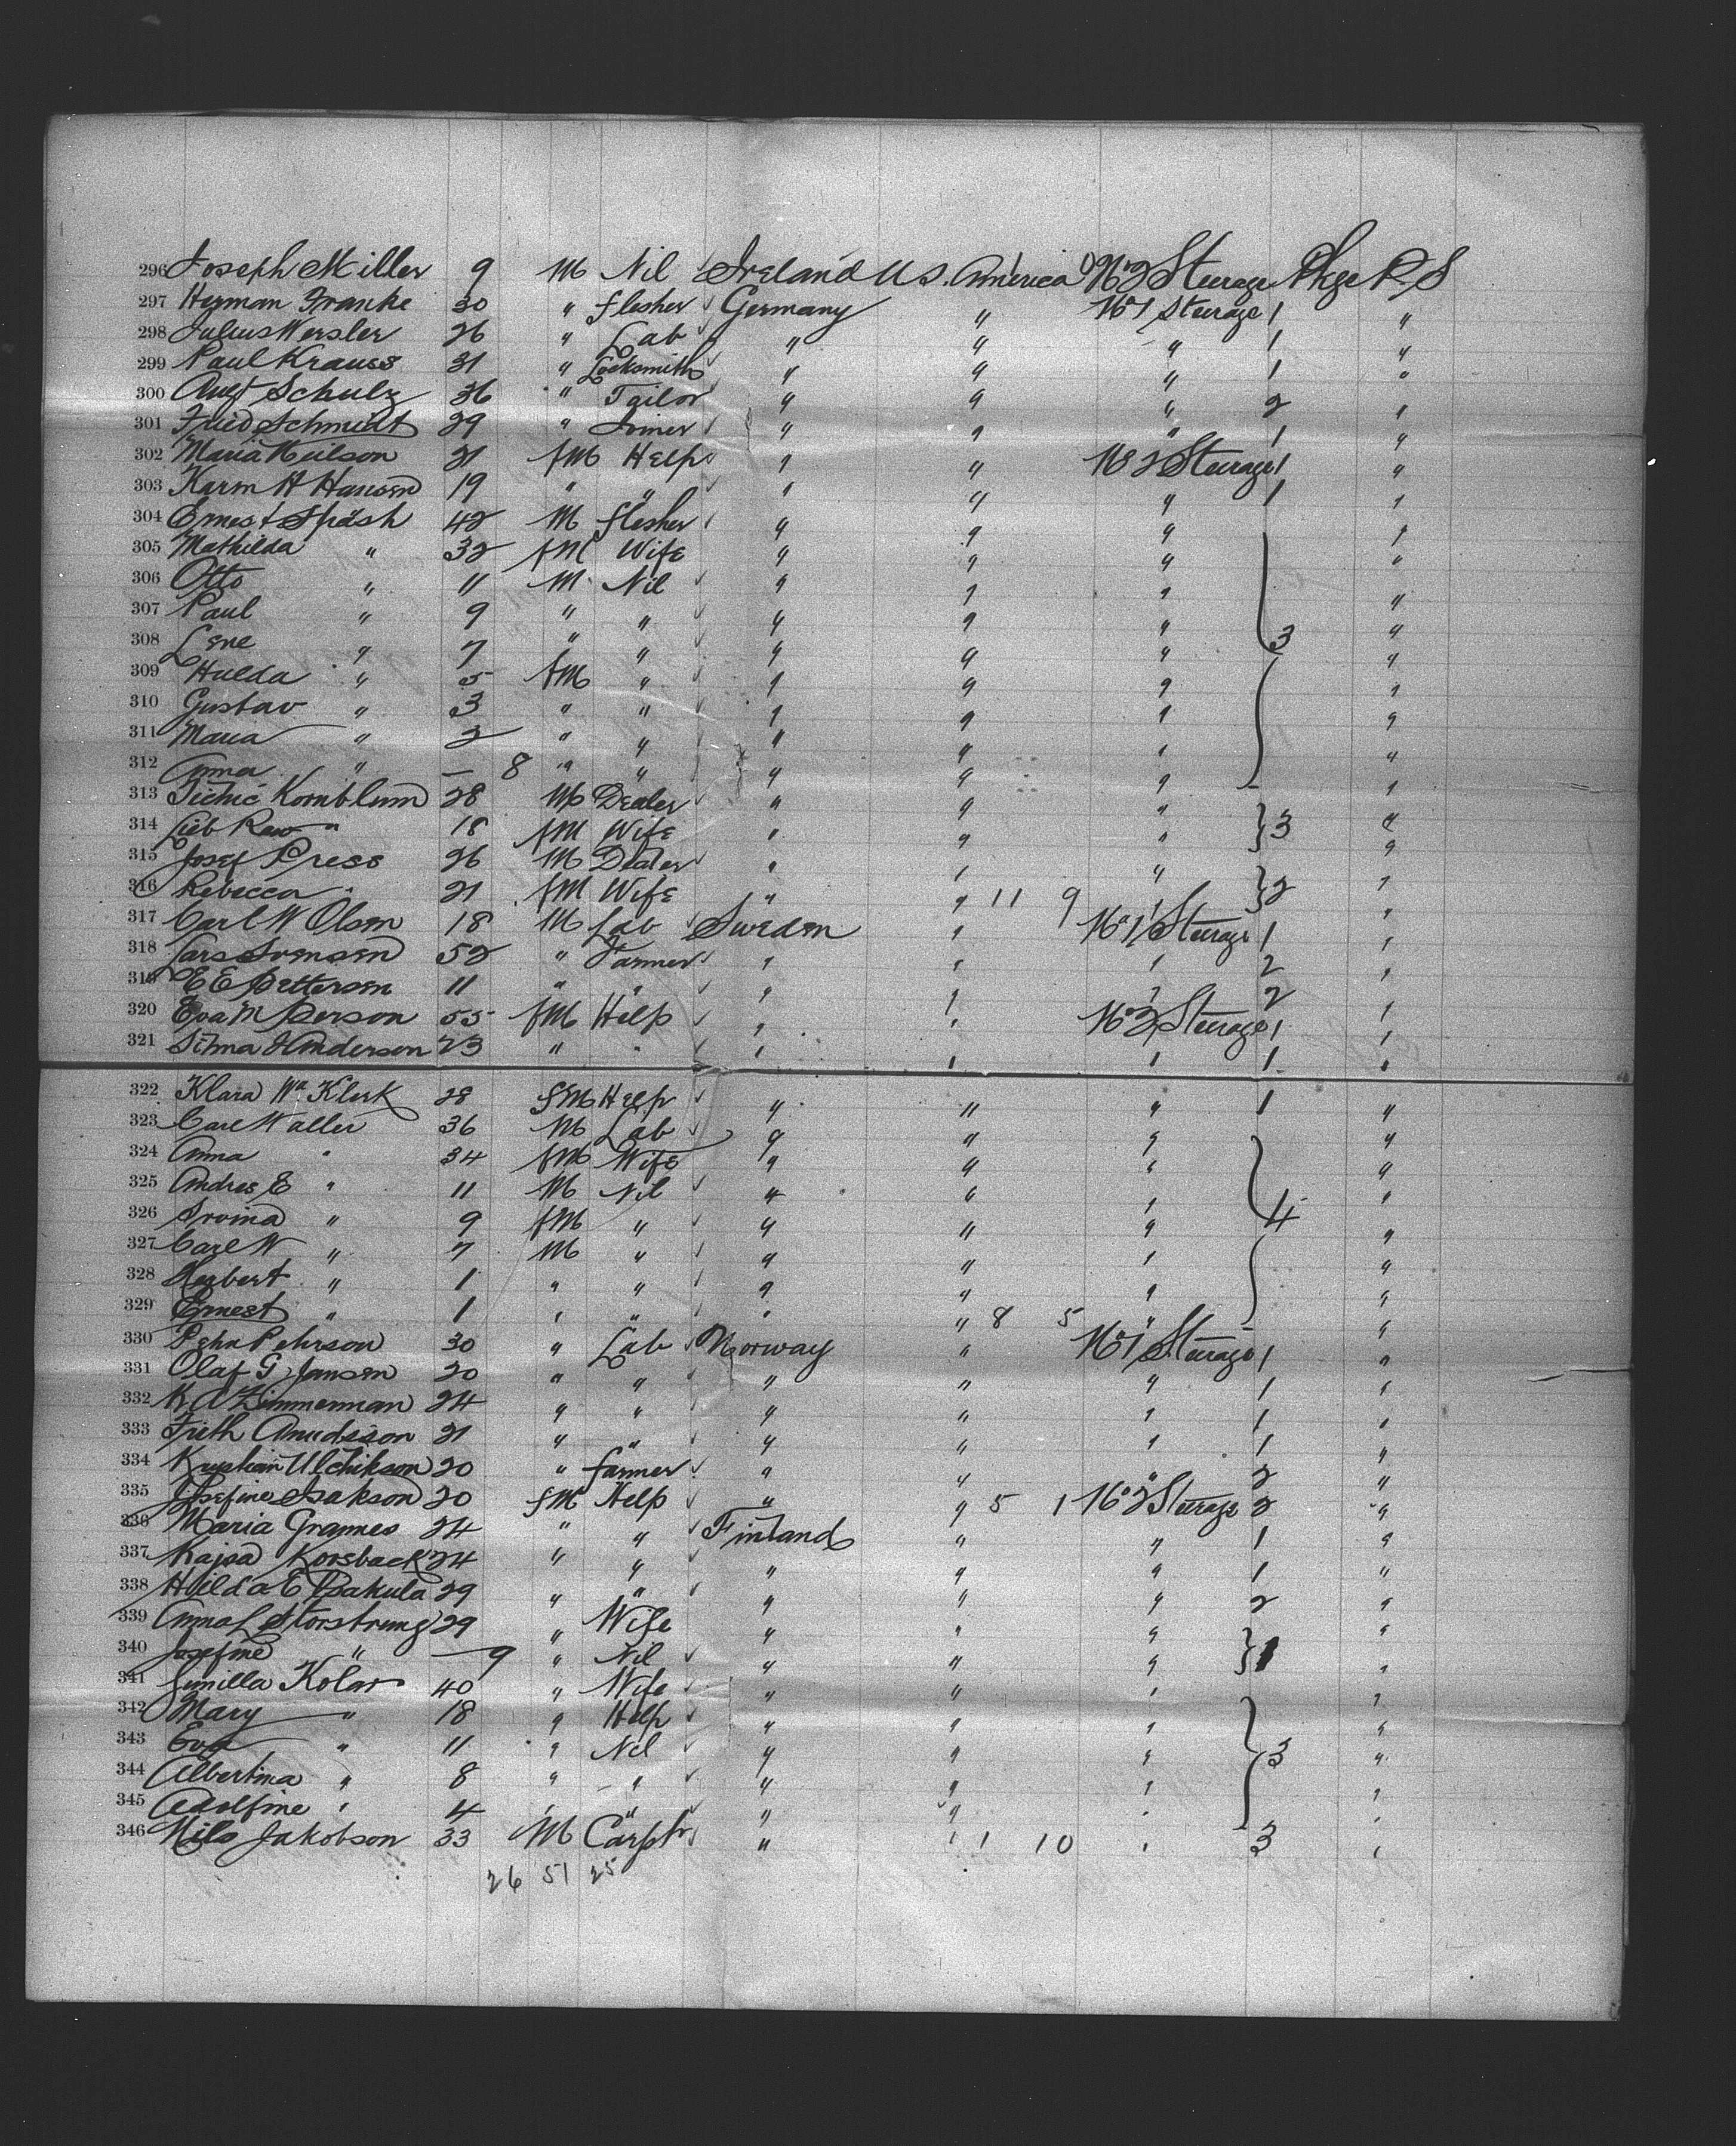 296 Joseph Miller 9 M Nil Ireland U S. America No 2 Steerage Phge R S
297 Herman Franke 30 " Flesher Germany " No 1 Steerage 1 "
298 Julius Wersler 26 " Lab " " " 1 "
299 Paul Krauss 31 " Locksmith " " " 1 "
300 Augt Schulz 36 " Tailor " " " 2 "
301 Fried Schmidt 29 " Joiner " " " 1 "
302 Maria Neilson 21 fM Help " " No 2 Steerage 1 "
303 Karm H Hansen 19 " " " " " 1 "
304 Ernest Späsh 42 M flesher " " " "
305 Mathilda " 32 fM Wife " " " "
306 Otto " 11 M Nil " " " "
307 Paul " 9 " " " " " "
308 Lene " 7 " " " " " 3 "
309 Hulda " 5 fM " " " " "
310 Gustav " 3 " " " " " "
311 Maria " 2 " " " " " "
312 Anna " — 8 " " " " " "
313 Kornblum 28 M Dealer " " " "
314 Lieb Rew " 18 fM Wife " " " 3 "
315 Josef Press 26 M Dealer " " " "
316 Rebecca " 21 fM Wife " " 11 9 " 2 "
317 Carl W Olsen 18 M Lab Sweden " No 1 Steerage 1 "
318 Lars Svensen 52 " Farmer " " " 2 "
319 E E Petterson 11 " " " " " 2 "
320 Eva M Person 55 fM Help " " No 2 Steerage 1 "
321 Silma Anderson 23 " " " " " 1 "
322 Klara Wa Klerk 28 fM Help " " " 1 "
323 Carl Waller 36 M Lab " " " "
324 Anna " 34 fM Wife " " " "
325 Andres E " 11 M Nil " " " "
326 " 9 fM " " " " 4 "
327 Carl W " 7 M " " " " "
328 Herbert " 1 " " " " " "
329 Ernest " 1 " " " " 8 5 " "
330 Pehrson 30 " Lab Norway " No 1 Steerage 1 "
331 Olaf G Jansen 20 " " " " " 1 "
332 K A Zimmerman 24 " " " " " 1 "
333 Frith Amudsson 21 " " " " " 1 "
334 20 " farmer " " " 2 "
335 Josefine Isakson 20 fM Help " " 5 1 No 2 Steerage 2 "
336 Maria Grannes 24 " " Finland " " 1 "
337 Kajsa Korsback 24 " " " " " 1 "
338 Hilda E 29 " " " " " 2 "
339 Anna L Storstrung 29 " Wife " " " "
340 Josefine " — 9 " Nil " " " 1 "
341 Kolar 40 " Wife " " " "
342 Mary " 18 " Help " " " "
343 Eva " 11 " Nil " " " 3 "
344 Albertina " 8 " " " " " "
345 Adolfine " 4 " " " " " "
346 Nils Jakobson 33 M Carptr " " 1 10 " 3 "
26 51 25